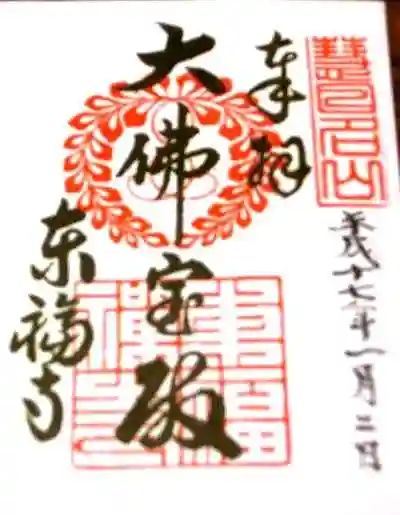 奉拝
大佛宝殿
東福寺
慧日山
平成十七年一月二日
東福禅寺